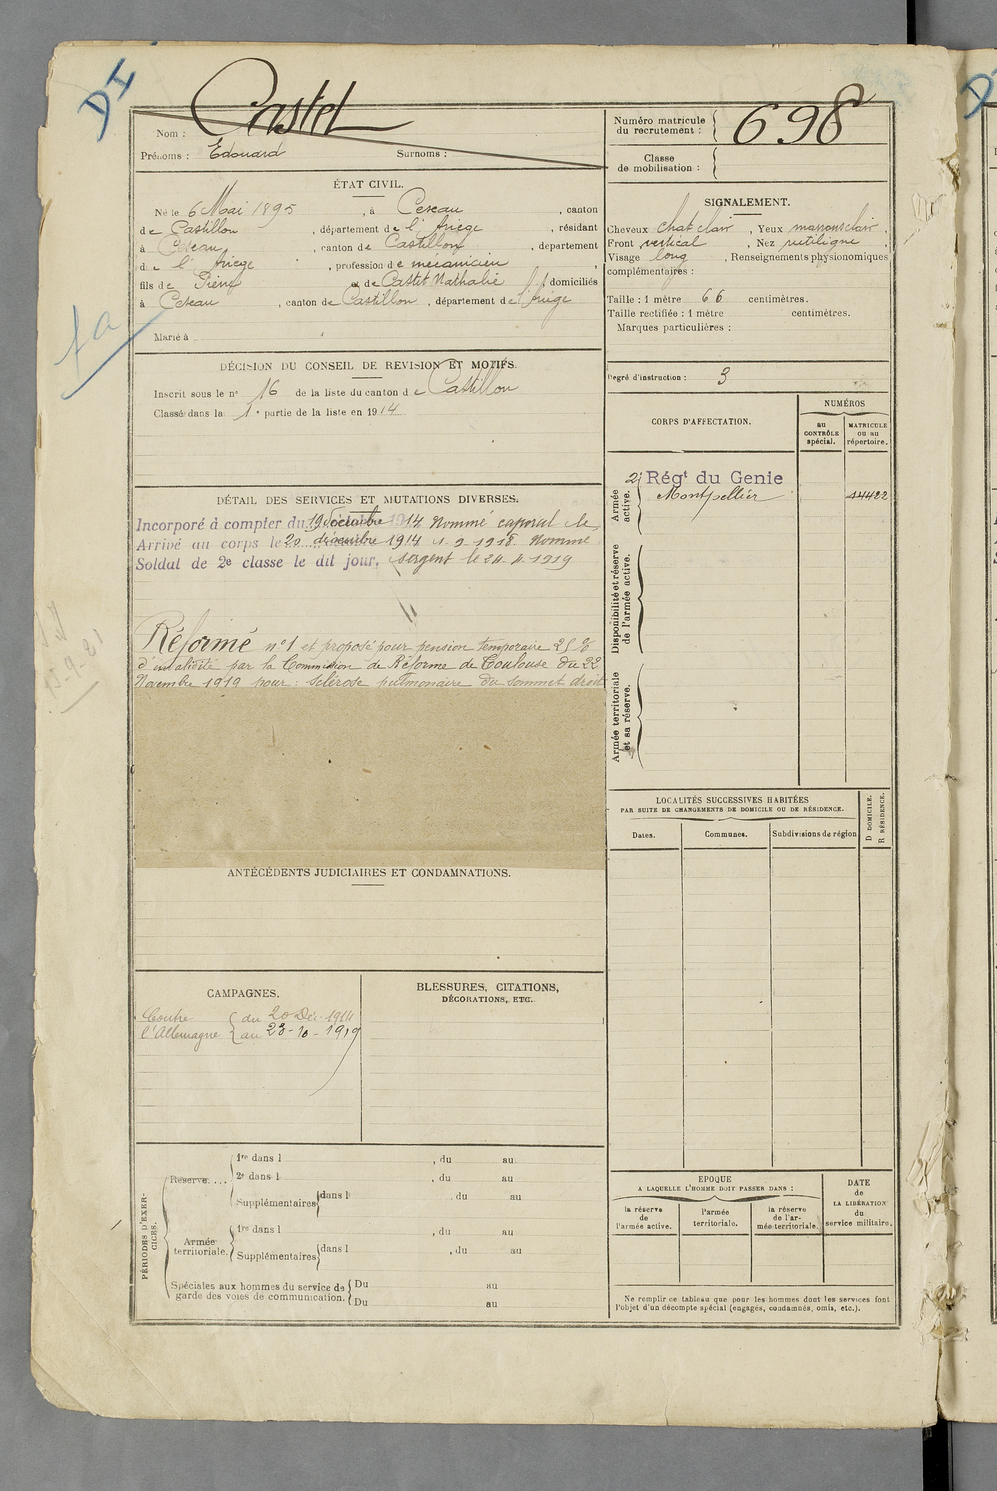 DI
Nom : Castel
Prénoms : Edouard Surnoms :
ÉTAT CIVIL.
Né le 6 Mai 1895 , à Cescau , canton
de Castillon , département de l'Ariège , résidant
à Cescau , canton de Castillon , département
de l'Ariège , profession de mécanicien ,
fils de et de Castet Nathalie , domiciliés
à Cescau , canton de Castillon , département de l'Ariège
Marié à
DÉCISION DU CONSEIL DE REVISION ET MOTIFS.
Inscrit sous le n° 16 de la liste du canton de Castillon
Classé dans la 1e partie de la liste en 1914
DÉTAIL DES SERVICES ET MUTATIONS DIVERSES.
Incorporé à compter du 19 décembre 1914 Nommé caporal le
Arrivé au corps le 20 décembre 1914 1-9-1918. Nommé
Soldat de 2e classe le dit jour. sergent le 24-4-1919
Réformé n°1 et proposé pour pension temporaire 25%
d'invalidité par la Commission de Réforme de Toulouse du 22
Novembre 1919 pour : sclérose pulmonaire du sommet droit
ANTÉCÉDENTS JUDICIAIRES ET CONDAMNATIONS.
CAMPAGNES.
Contre { du 20 Déc. 1914
l'Allemagne { au 23-10-1919
BLESSURES, CITATIONS,
DÉCORATIONS, ETC.
PÉRIODES D'EXERCICES.
Réserve....
1re dans l , du au
2e dans l , du au
Supplémentaires { dans l , du au
Armée territoriale.
1re dans l , du au
Supplémentaires { dans l , du au
Spéciales aux hommes du service de { Du au
garde des voies de communication. { Du au
Numéro matricule
du recrutement : 698
Classe
de mobilisation :
SIGNALEMENT.
Cheveux chat clair , Yeux marron clair ,
Front vertical , Nez rectiligne ,
Visage long , Renseignements physionomiques
complémentaires :
Taille : 1 mètre 66 centimètres.
Taille rectifiée : 1 mètre centimètres.
Marques particulières :
Degré d'instruction : 3
CORPS D'AFFECTATION.
NUMÉROS
au
CONTRÔLE
spécial.
MATRICULE
ou au
répertoire.
Armée
active.
2e Régt du Genie
Montpellier 14422
Disponibilité et réserve
de l'armée active.
Armée territoriale
et sa réserve.
LOCALITÉS SUCCESSIVES HABITÉES
PAR SUITE DE CHANGEMENTS DE DOMICILE OU DE RÉSIDENCE.
Dates. Communes. Subdivisions de région
D DOMICILE.
R RÉSIDENCE.
EPOQUE
A LAQUELLE L'HOMME DOIT PASSER DANS :
la réserve
de
l'armée active.
l'armée
territoriale.
la réserve
de l'ar-
mée territoriale.
DATE
de
LA LIBÉRATION
du
service militaire.
Ne remplir ce tableau que pour les hommes dont les services font
l'objet d'un décompte spécial (engagés, condamnés, omis, etc.).